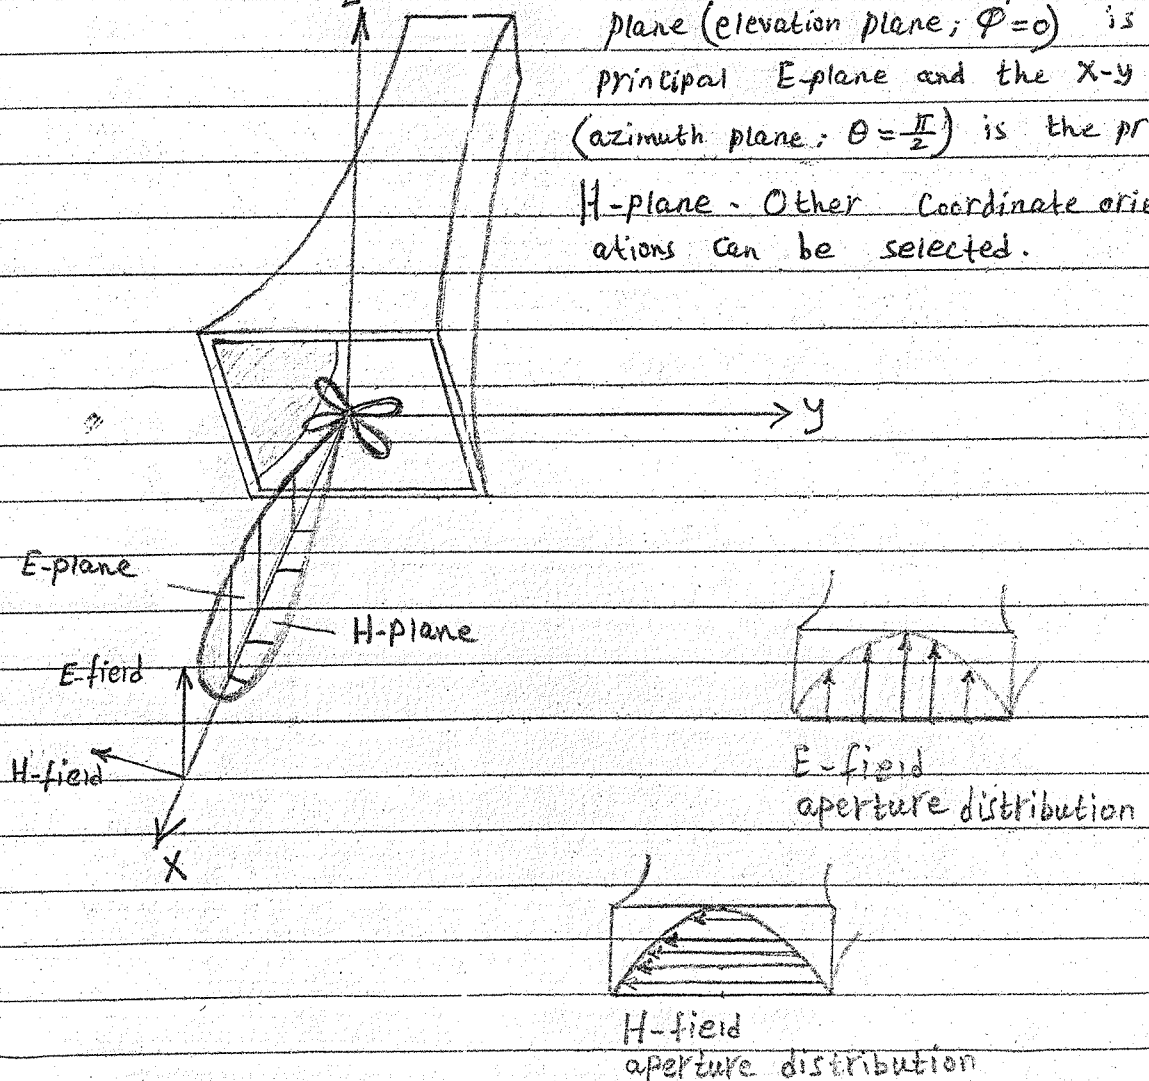 plane (elevation plane; φ=0) is
principal E-plane and the x-y
(azimuth plane; θ = π/2) is the pr
H-plane. Other Coordinate orie
ations can be selected.
y
E-plane
H-plane
E-field
H-field
x
E-field
aperture distribution
H-field
aperture distribution